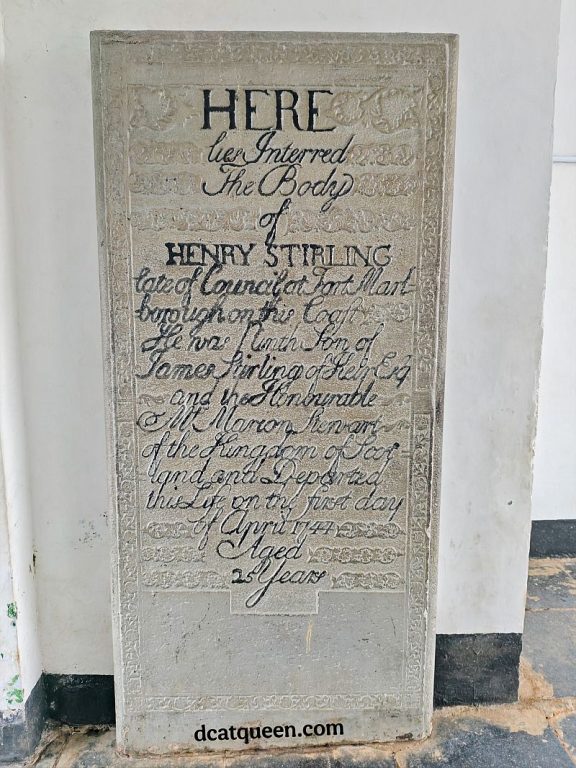 HERE
lies Interred
The Body
of
HENRY STIRLING
late of Council at Fort Marl-
borough on this Coast
He was Ninth Son of
James Stirling of Keir Esq
and the Honourable
Mrs Marion Stewart
of the Kingdom of Scot-
land and Departed
this Life on the first day
of April 1744
Aged
25 Years
dcatqueen.com